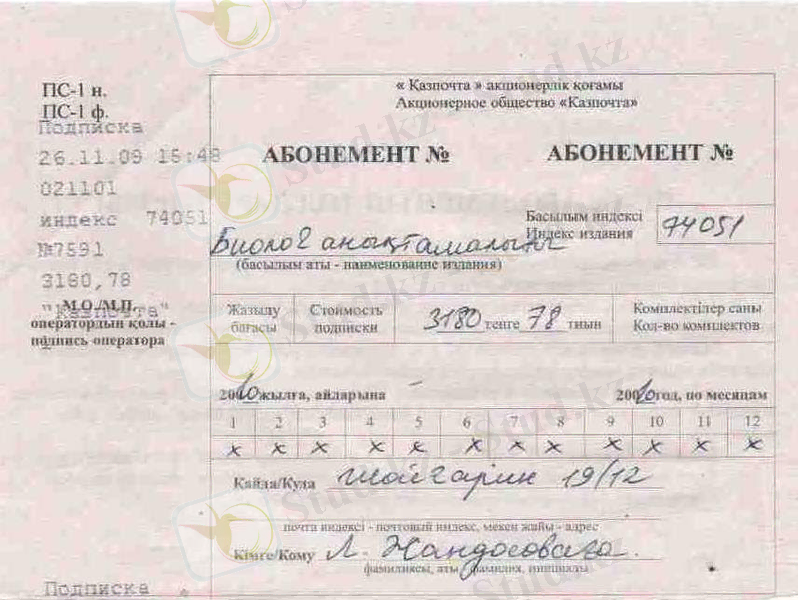 ПС-1 н.
ПС-1 ф.
Подписка
26.11.09 15:48
021101
индекс 74051
№7591
3180,78
"Казпочта"
М.О./М.П.
оператордың қолы -
подпись оператора
« Қазпочта » акционерлік қоғамы
Акционерное общество «Казпочта»
АБОНЕМЕНТ № АБОНЕМЕНТ №
Басылым индексі
Индекс издания 74051
Биолог анықтамалығы
(басылым аты - наименование издания)
Жазылу бағасы Стоимость подписки 3180 тенге 78 тиын Комплектілер саны Кол-во комплектов
2010 жылға, айларына 2010 год, по месяцам
1 2 3 4 5 6 7 8 9 10 11 12
x x x x x x x x x x x x
Қайда/Куда 19/12
почта индексі - почтовый индекс, мекен жайы - адрес
Кімге/Кому Л. Жандосоваға
фамилиясы, аты фамилия, инициалы
Подписка
Stud.kz